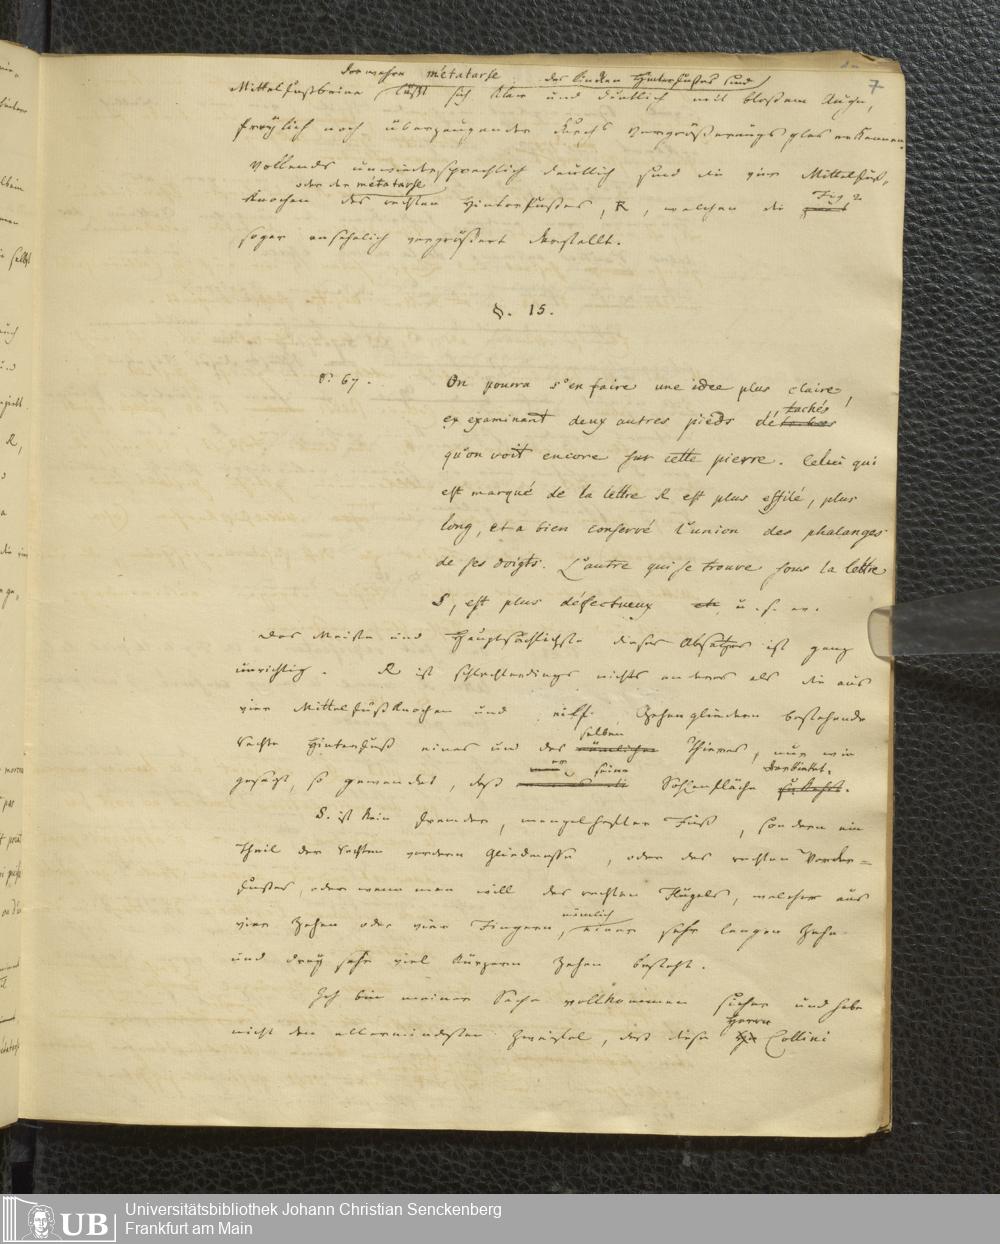 7
oder wahre métatarse des linken Hinterfußes sind
Mittelfußbeine läßt sich klar und deutlich mit bloßem Auge,
freylich noch überzeugender durchs Vergrößerungsglas erkennen.
Vollends unwidersprechlich deutlich sind die vier Mittelfuß-
oder der métatarse
Knochen des rechten Hinterfußes, R, welchen die
Fig 2
sogar ansehnlich vergrößert darstellt.
§. 15.
P. 67.
On pourra s'en faire une idee plus claire,
ex examinant deux autres pieds détachés
qu'on voit encore sur cette pierre. Celui qui
est marqué de la lettre R est plus effilé, plus
long, et a bien conservé l'union des phalanges
de ses doigts. L'autre qui se trouve sous la lettre
S, est plus défectueux etc u. s. w.
Das Meiste und Hauptsächlichste dieses Absatzes ist ganz
unrichtig. R ist schlechterdings nichts anderes als die aus
vier Mittelfußknochen und eilf Zehengliedern bestehende
selben
rechte Hinterfuß eines und des nämlichen Thieres, nur wie
er seine darbietet.
gesagt, so gewendet, daß Sohlenfläche
S. ist kein fremder, mangelhafter Fuß, sondern ein
Theil der rechten vordern Gliedmasse, oder des rechten Vorder=
fußes, oder wenn man will des rechten Flügels, welcher aus
nämlich
vier Zehen oder vier Fingern, einer sehr langen Zehe
und drey sehr viel kürzern Zehen besteht.
Ich bin meiner Sache vollkommen sicher und habe
Herrn
nicht den allermindesten Zweifel, daß diese Collini
UB
Universitätsbibliothek Johann Christian Senckenberg
Frankfurt am Main